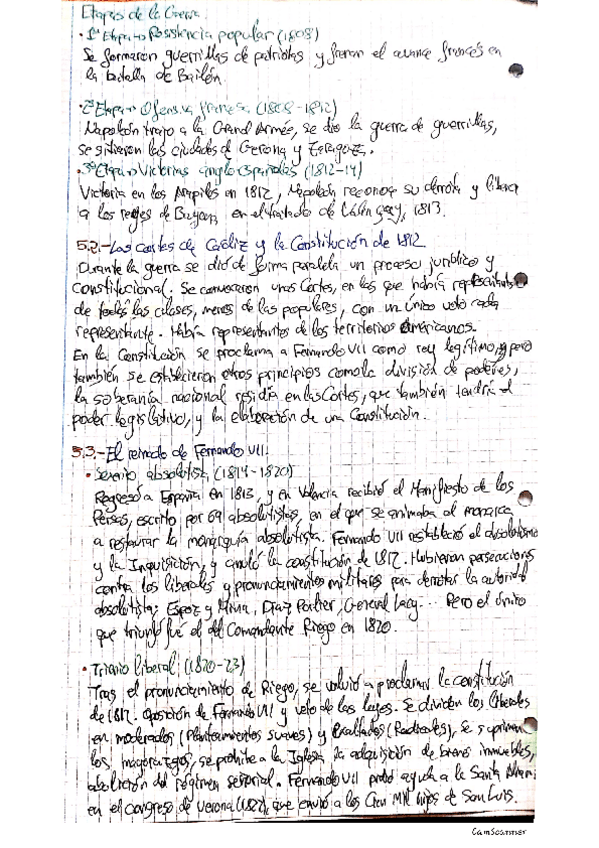 Etapas de la Guerra
· 1ª Etapa → Resistencia popular (1808)
Se formaron guerrillas de patriotas y frenan el avance francés en
la batalla de Bailén.
· 2ª Etapa → Ofensiva francesa (1808-1812)
Napoleón trajo a la Grand Armée, se dio la guerra de guerrillas,
se sitiaron las ciudades de Gerona y Zaragoza.
· 3ª Etapa → Victorias anglo españolas (1812-14)
Victoria en los Arapiles en 1812, Napoleón reconoce su derrota y libera
a los reyes de en el tratado de Valençay, 1813.
5.2.- Las cortes de Cádiz y la Constitución de 1812
Durante la guerra se dió de forma paralela un proceso jurídico y
constitucional. Se convocaron unas Cortes, en las que había representantes
de todas las clases, menos de las populares, con un único voto cada
representante. Había representantes de los territorios americanos.
En la Constitución se proclama a Fernando VII como rey legítimo, pero
también se establecieron otros principios como la división de poderes,
la soberanía nacional residía en las Cortes, que también tendría el
poder legislativo, y la elaboración de una Constitución.
5.3.- El reinado de Fernando VII.
· Sexenio absolutista (1814-1820)
Regresó a España en 1813, y en Valencia recibió el Manifiesto de los
Persas, escrito por 69 absolutistas, en el que se animaba al monarca
a restaurar la monarquía absolutista. Fernando VII estableció el absolutismo
y la Inquisición, y anuló la constitución de 1812. Hubieron persecuciones
contra los liberales y pronunciamientos militares para derrotar la autoridad
absolutista: Espoz y Mina, Díaz Porlier, General Lacy... Pero el único
que triunfó fué el del Comandante Riego en 1820.
· Trienio liberal (1820-23)
Tras el pronunciamiento de Riego, se volvió a proclamar la constitución
de 1812. Oposición de Fernando VII y veto de las leyes. Se dividen los liberales
en moderados (Planteamientos suaves) y Exaltados (Radicales), se suprimen
los mayorazgos, se prohíbe a la Iglesia la adquisición de bienes inmuebles,
abolición del régimen señorial. Fernando VII pidió ayuda a la Santa Alianza
en el congreso de Verona (1822), que envió a los Cien Mil hijos de San Luis.
CamScanner